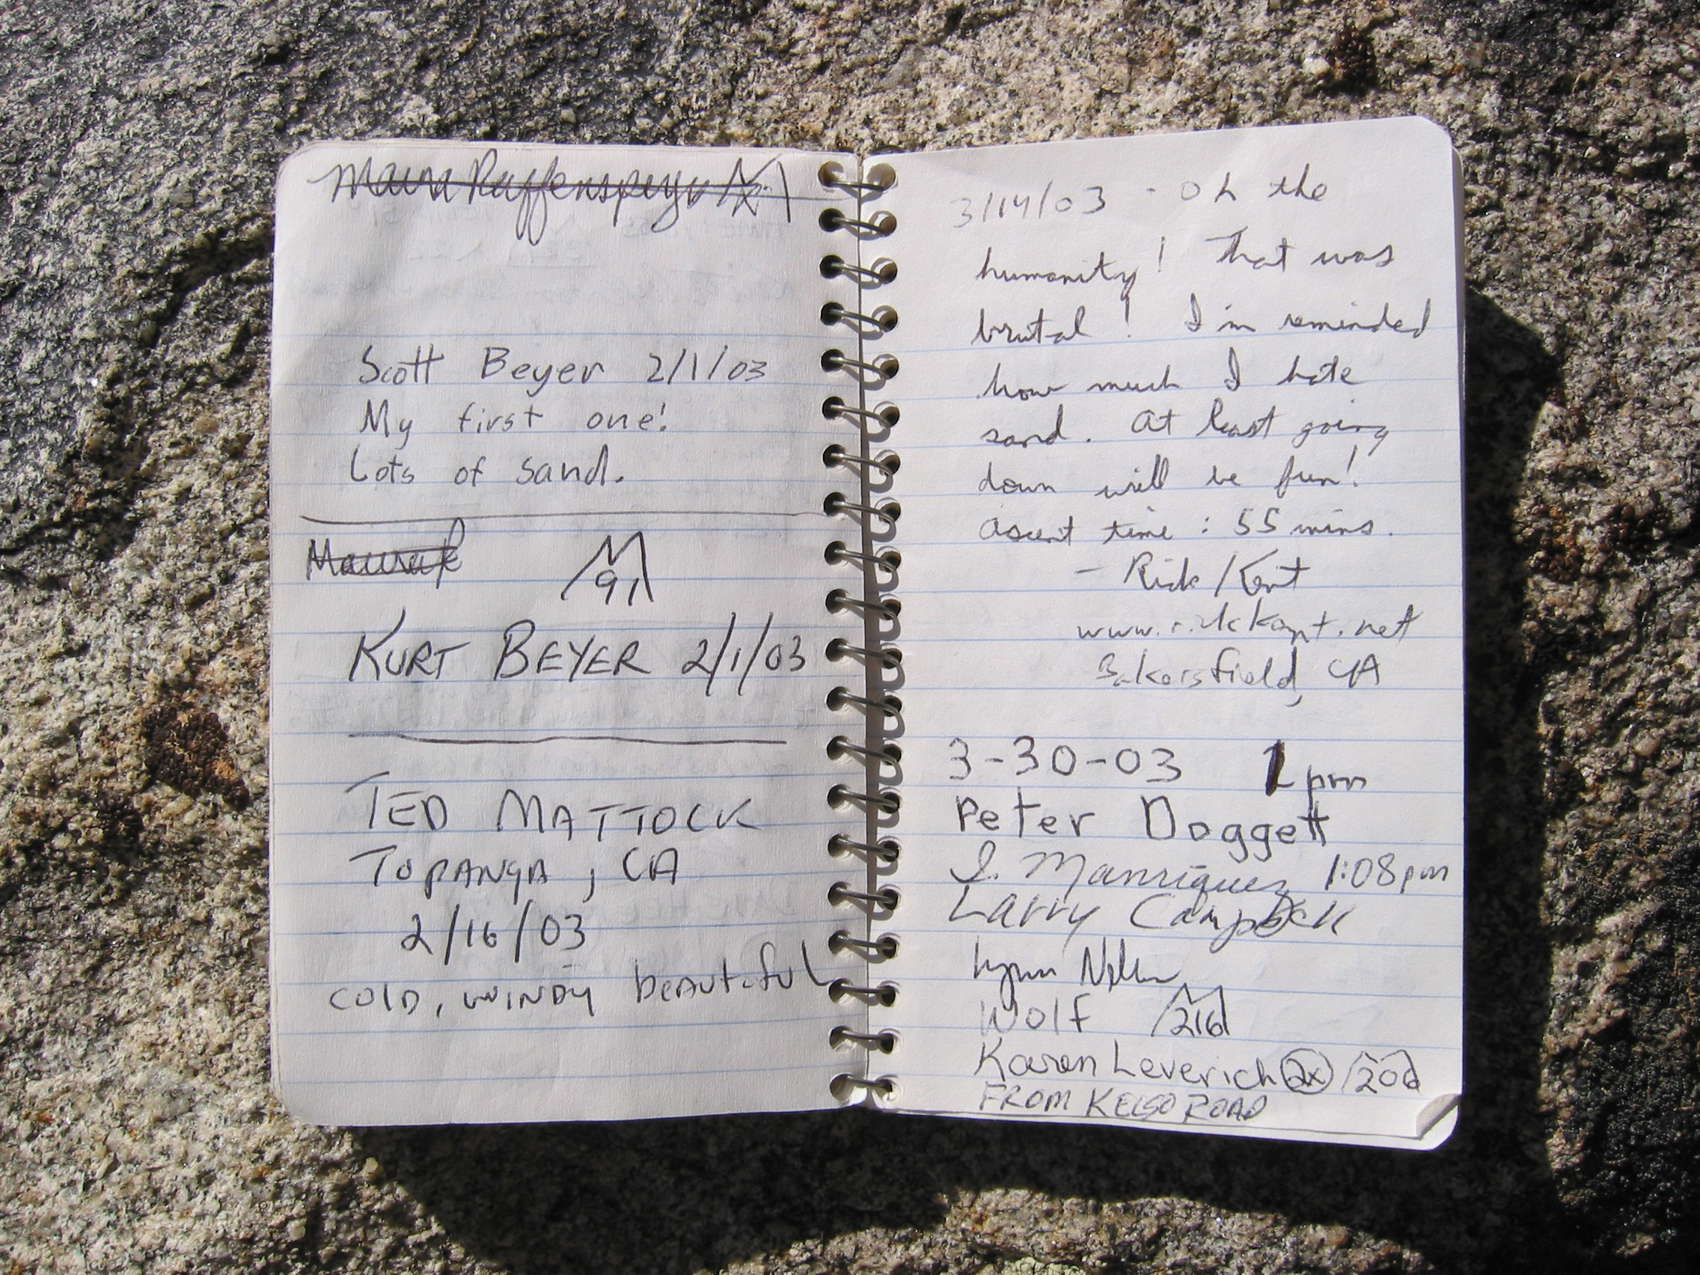 Scott Beyer 2/1/03
My first one!
Lots of sand.
91
KURT BEYER 2/1/03
TED MATTOCK
TOPANGA, CA
2/16/03
COLD, WINDY beautiful
3/14/03 - Oh the
humanity! That was
brutal! I'm reminded
how much I hate
sand. At least going
down will be fun!
ascent time: 55 mins.
- Rick Kent
www.rickkent.net
Bakersfield, CA
3-30-03 1pm
Peter Doggett
J. Manriquez 1:08pm
Larry Campbell
Lynn
Wolf 216
Karen Leverich 2x 206
FROM KELSO ROAD